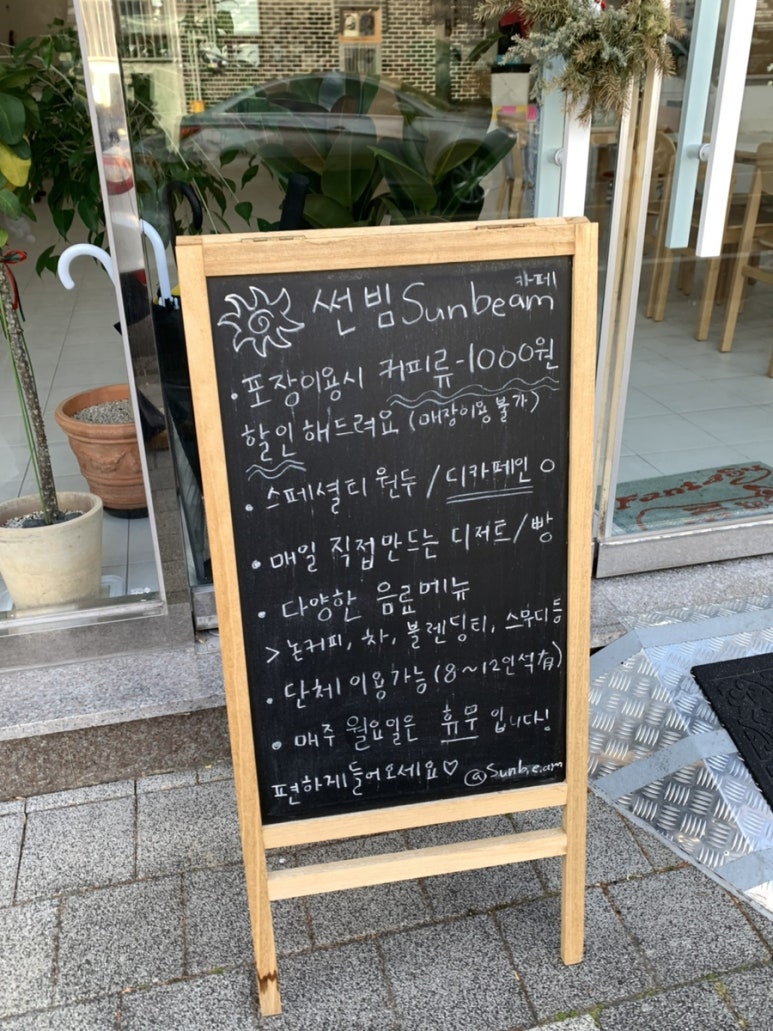 카페
썬빔 Sunbeam
• 포장이용시 커피류 -1000원
할인해드려요 (매장이용불가)
• 스페셜티 원두 / 디카페인 O
• 매일 직접만드는 디저트/빵
• 다양한 음료메뉴
> 논커피, 차, 블렌딩티, 스무디 등
• 단체이용가능 (8~12인석 有)
• 매주 월요일은 휴무 입니다!
편하게들어오세요♡ @Sunbe.am